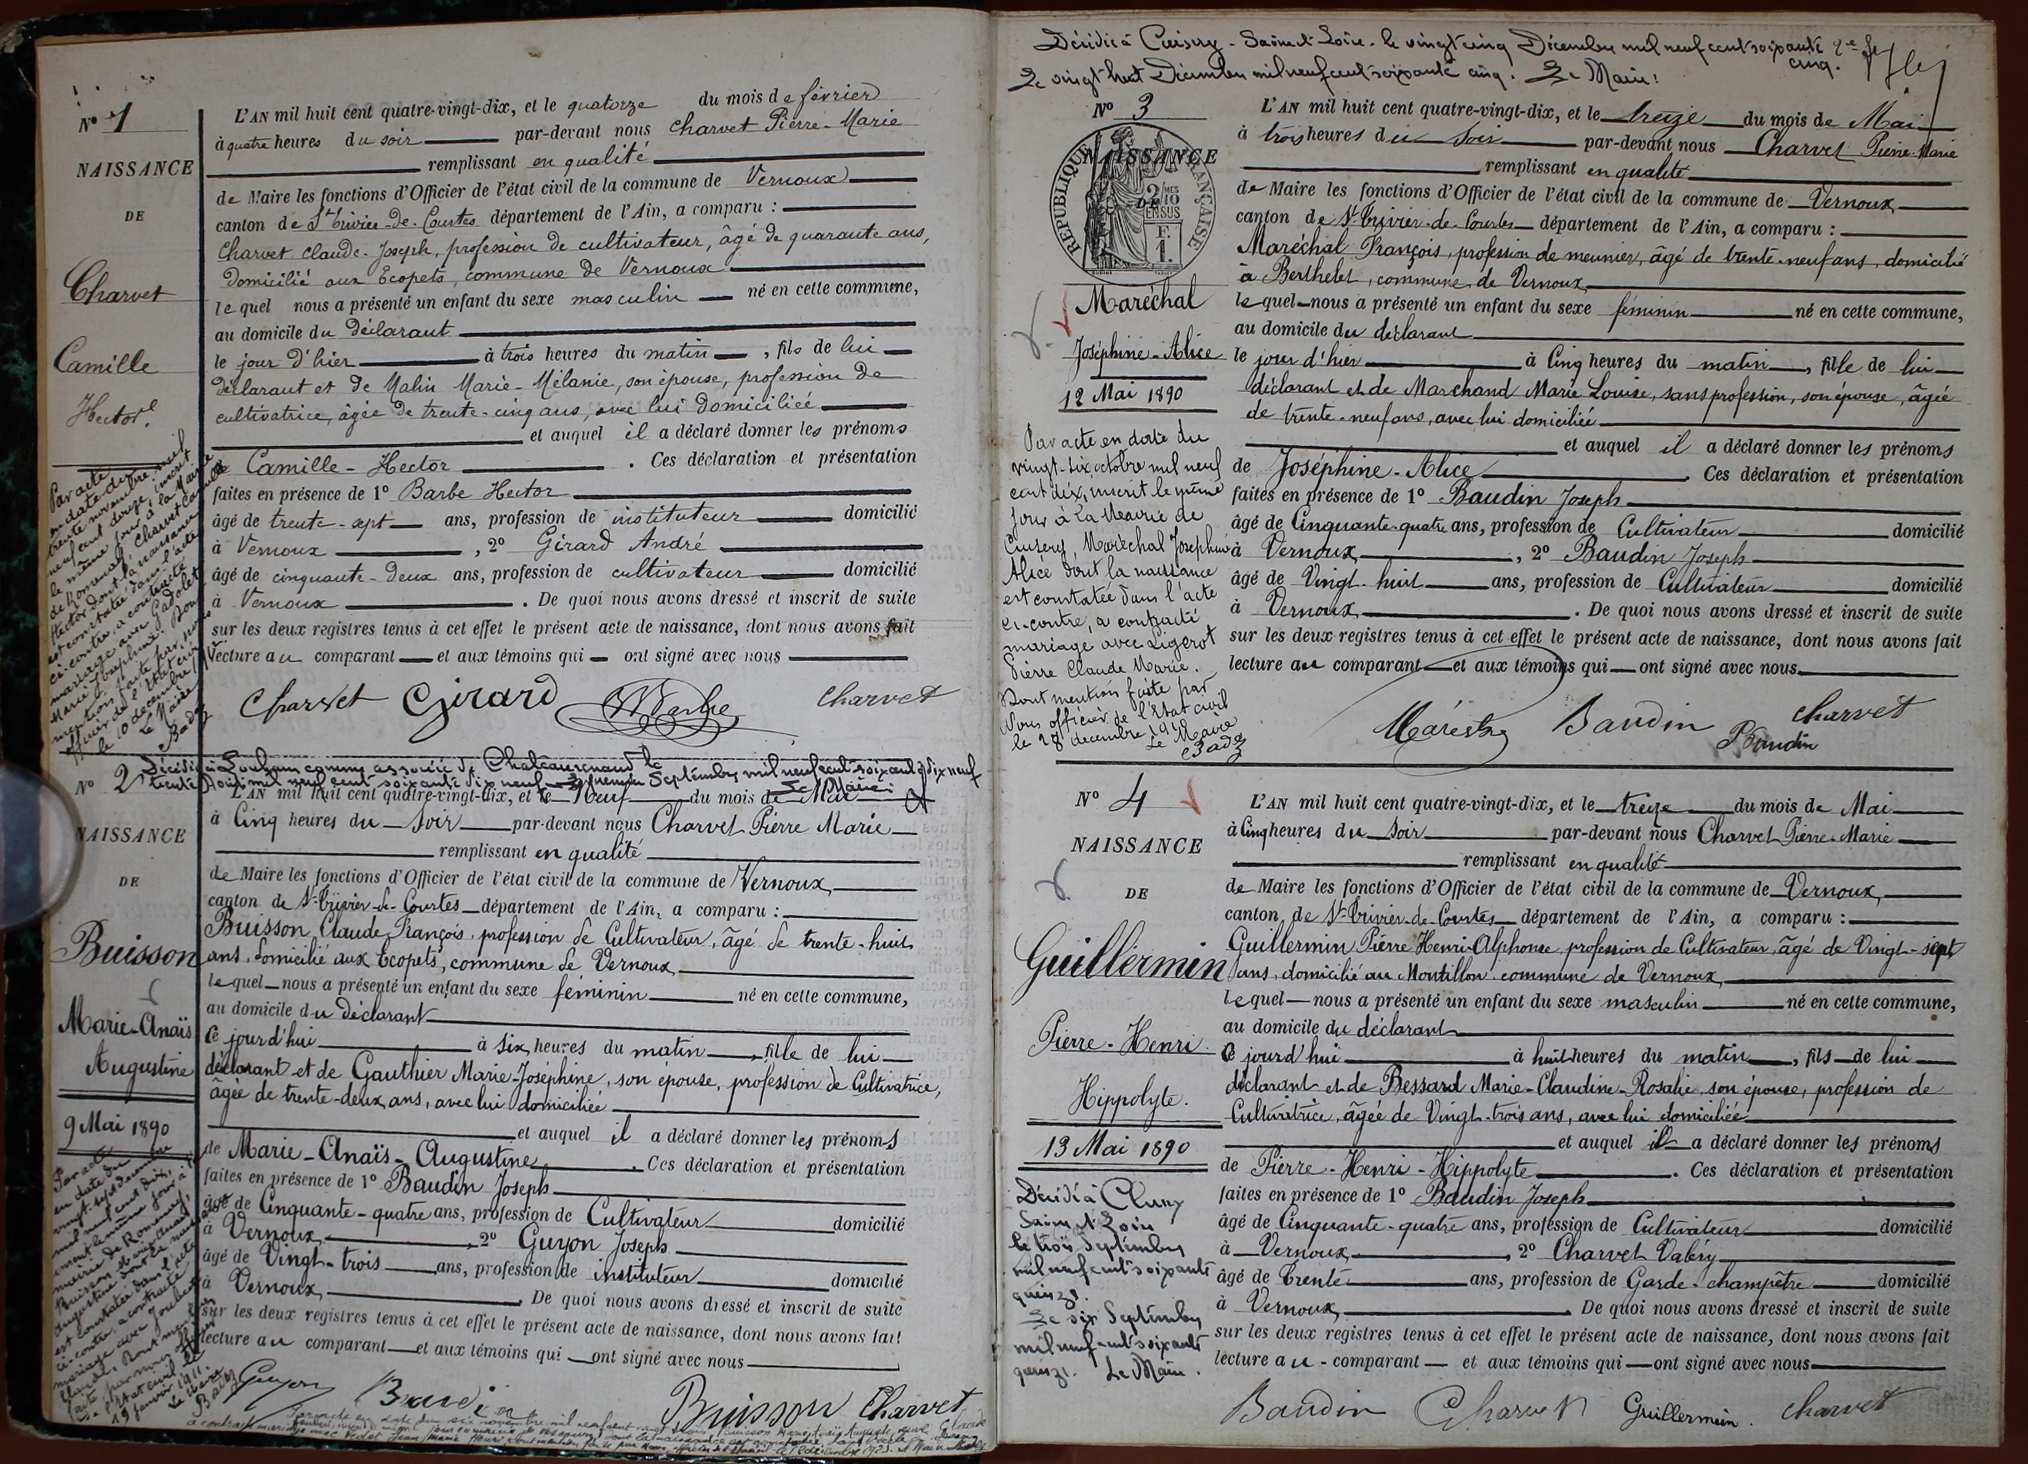 Nº 1
NAISSANCE
DE
Charvet
Camille
Hector
L'AN mil huit cent quatre-vingt-dix, et le quatorze du mois de février
à quatre heures du soir par-devant nous Charvet Pierre-Marie
remplissant en qualité
de Maire les fonctions d'Officier de l'état civil de la commune de Vernoux
canton de St Trivier-de-Courtes département de l'Ain, a comparu :
Charvet Claude-Joseph, profession de cultivateur, âgé de quarante ans,
domicilié aux Ecopets, commune de Vernoux
lequel nous a présenté un enfant du sexe masculin né en cette commune,
au domicile du déclarant
le jour d'hier à trois heures du matin, fils de lui
déclarant et de Malin Marie-Mélanie, son épouse, profession de
cultivatrice, âgée de trente-cinq ans, avec lui domiciliée
et auquel il a déclaré donner les prénoms
de Camille-Hector. Ces déclaration et présentation
faites en présence de 1º Barbe Hector
âgé de trente-sept ans, profession de instituteur domicilié
à Vernoux, 2º Girard André
âgé de cinquante-deux ans, profession de cultivateur domicilié
à Vernoux. De quoi nous avons dressé et inscrit de suite
sur les deux registres tenus à cet effet le présent acte de naissance, dont nous avons fait
lecture au comparant et aux témoins qui ont signé avec nous
Charvet Girard Barbe Charvet
Par acte
en date du
trente novembre mil
neuf cent douze, inscrit
le même jour à la Mairie
de Romenay, Charvet Camille
Hector dont la naissance
est constatée dans l'acte
ci-contre, a contracté
mariage avec
Marie Joséphine. Dont
mention faite par nous
officier de l'Etat civil
le 10 décembre
Le Maire
Nº 2
NAISSANCE
DE
Buisson
Marie-Anaïs
Augustine
9 Mai 1890
L'AN mil huit cent quatre-vingt-dix, et le Neuf du mois de Mai
à Cinq heures du soir par-devant nous Charvet Pierre Marie
remplissant en qualité
de Maire les fonctions d'Officier de l'état civil de la commune de Vernoux
canton de St-Trivier-de-Courtes département de l'Ain, a comparu :
Buisson Claude François, profession de Cultivateur, âgé de trente-huit
ans, domicilié aux Ecopets, commune de Vernoux
lequel nous a présenté un enfant du sexe féminin né en cette commune,
au domicile du déclarant
ce jourd'hui à six heures du matin, fille de lui
déclarant et de Gauthier Marie-Joséphine, son épouse, profession de Cultivatrice,
âgée de trente-deux ans, avec lui domiciliée
et auquel il a déclaré donner les prénoms
de Marie-Anaïs-Augustine. Ces déclaration et présentation
faites en présence de 1º Baudin Joseph
âgé de Cinquante-quatre ans, profession de Cultivateur domicilié
à Vernoux, 2º Guyon Joseph
âgé de Vingt-trois ans, profession de instituteur domicilié
à Vernoux. De quoi nous avons dressé et inscrit de suite
sur les deux registres tenus à cet effet le présent acte de naissance, dont nous avons fait
lecture au comparant et aux témoins qui ont signé avec nous
Guyon Baudin Buisson Charvet
Décédée à Cuisery - Saône et Loire - le vingt cinq Décembre mil neuf cent soixante
cinq.
Le vingt huit Décembre mil neuf cent soixante cinq. Le Maire:
Nº 3
NAISSANCE
DE
RÉPUBLIQUE FRANÇAISE
2/10 EN SUS
F. 1.
Maréchal
Joséphine-Alice
12 Mai 1890
L'AN mil huit cent quatre-vingt-dix, et le treize du mois de Mai
à trois heures du soir par-devant nous Charvet Pierre-Marie
remplissant en qualité
de Maire les fonctions d'Officier de l'état civil de la commune de Vernoux
canton de St-Trivier-de-Courtes département de l'Ain, a comparu :
Maréchal François, profession de meunier, âgé de trente-neuf ans, domicilié
à Berthelet, commune de Vernoux
lequel nous a présenté un enfant du sexe féminin né en cette commune,
au domicile du déclarant
le jour d'hier à Cinq heures du matin, fille de lui
déclarant et de Marchand Marie Louise, sans profession, son épouse, âgée
de trente-neuf ans, avec lui domiciliée
et auquel il a déclaré donner les prénoms
de Joséphine-Alice. Ces déclaration et présentation
faites en présence de 1º Baudin Joseph
âgé de Cinquante-quatre ans, profession de Cultivateur domicilié
à Vernoux, 2º Baudin Joseph
âgé de Vingt-huit ans, profession de Cultivateur domicilié
à Vernoux. De quoi nous avons dressé et inscrit de suite
sur les deux registres tenus à cet effet le présent acte de naissance, dont nous avons fait
lecture au comparant et aux témoins qui ont signé avec nous
Baudin Charvet
Baudin
Par acte en date du
vingt-six octobre mil neuf
cent dix, inscrit le même
jour à la Mairie de
Cuisery, Maréchal Joséphine
Alice dont la naissance
est constatée dans l'acte
ci-contre, a contracté
mariage avec Ligerot
Pierre Claude Marie.
Dont mention faite par
Nous officier de l'Etat civil
le 28 décembre
Le Maire
Nº 4
NAISSANCE
DE
Guillermin
Pierre-Henri
Hippolyte.
13 Mai 1890
L'AN mil huit cent quatre-vingt-dix, et le treize du mois de Mai
à Cinq heures du soir par-devant nous Charvet Pierre-Marie
remplissant en qualité
de Maire les fonctions d'Officier de l'état civil de la commune de Vernoux
canton de St-Trivier-de-Courtes département de l'Ain, a comparu :
Guillermin Pierre Henri-Alphonse, profession de Cultivateur, âgé de Vingt-sept
ans, domicilié au Montillon commune de Vernoux
lequel nous a présenté un enfant du sexe masculin né en cette commune,
au domicile du déclarant
ce jourd'hui à huit heures du matin, fils de lui
déclarant et de Bessard Marie-Claudine-Rosalie, son épouse, profession de
Cultivatrice, âgée de Vingt-trois ans, avec lui domiciliée
et auquel il a déclaré donner les prénoms
de Pierre-Henri-Hippolyte. Ces déclaration et présentation
faites en présence de 1º Baudin Joseph
âgé de Cinquante-quatre ans, profession de Cultivateur domicilié
à Vernoux, 2º Charvet Valéry
âgé de Trente ans, profession de Garde-champêtre domicilié
à Vernoux. De quoi nous avons dressé et inscrit de suite
sur les deux registres tenus à cet effet le présent acte de naissance, dont nous avons fait
lecture au comparant et aux témoins qui ont signé avec nous
Baudin Charvet Guillermin. Charvet
Décédé à Cluny
Saône et Loire
le trois Septembre
mil neuf cent soixante
quinze.
Le six Septembre
mil neuf cent soixante
quinze. Le Maire.